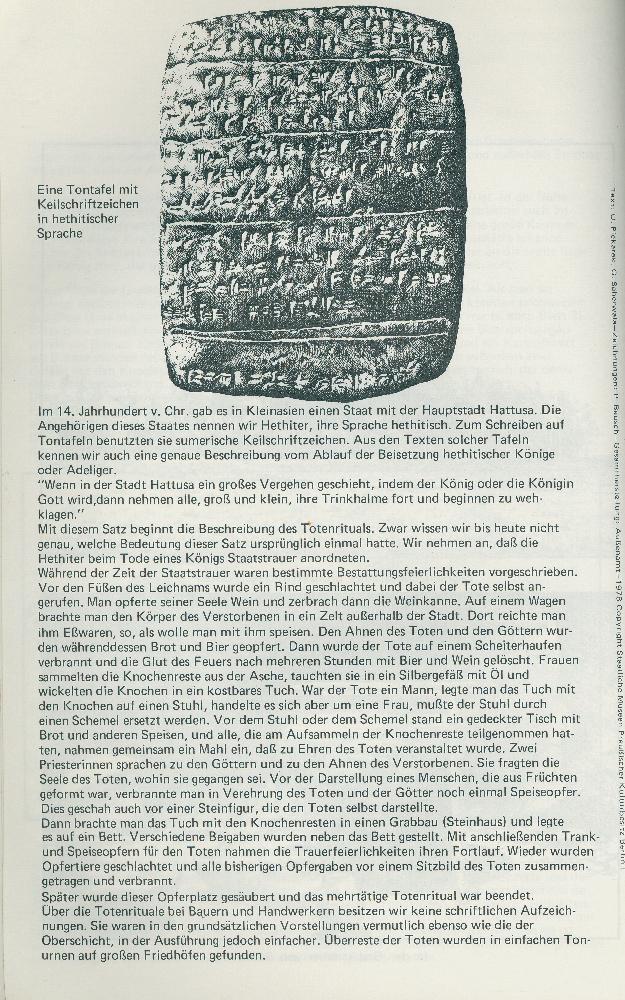 Eine Tontafel mit
Keilschriftzeichen
in hethitischer
Sprache
Im 14. Jahrhundert v. Chr. gab es in Kleinasien einen Staat mit der Hauptstadt Hattusa. Die
Angehörigen dieses Staates nennen wir Hethiter, ihre Sprache hethitisch. Zum Schreiben auf
Tontafeln benutzten sie sumerische Keilschriftzeichen. Aus den Texten solcher Tafeln
kennen wir auch eine genaue Beschreibung vom Ablauf der Beisetzung hethitischer Könige
oder Adeliger.
"Wenn in der Stadt Hattusa ein großes Vergehen geschieht, indem der König oder die Königin
Gott wird,dann nehmen alle, groß und klein, ihre Trinkhalme fort und beginnen zu weh-
klagen."
Mit diesem Satz beginnt die Beschreibung des Totenrituals. Zwar wissen wir bis heute nicht
genau, welche Bedeutung dieser Satz ursprünglich einmal hatte. Wir nehmen an, daß die
Hethiter beim Tode eines Königs Staatstrauer anordneten.
Während der Zeit der Staatstrauer waren bestimmte Bestattungsfeierlichkeiten vorgeschrieben.
Vor den Füßen des Leichnams wurde ein Rind geschlachtet und dabei der Tote selbst an-
gerufen. Man opferte seiner Seele Wein und zerbrach dann die Weinkanne. Auf einem Wagen
brachte man den Körper des Verstorbenen in ein Zelt außerhalb der Stadt. Dort reichte man
ihm Eßwaren, so, als wolle man mit ihm speisen. Den Ahnen des Toten und den Göttern wur-
den währenddessen Brot und Bier geopfert. Dann wurde der Tote auf einem Scheiterhaufen
verbrannt und die Glut des Feuers nach mehreren Stunden mit Bier und Wein gelöscht. Frauen
sammelten die Knochenreste aus der Asche, tauchten sie in ein Silbergefäß mit Öl und
wickelten die Knochen in ein kostbares Tuch. War der Tote ein Mann, legte man das Tuch mit
den Knochen auf einen Stuhl, handelte es sich aber um eine Frau, mußte der Stuhl durch
einen Schemel ersetzt werden. Vor dem Stuhl oder dem Schemel stand ein gedeckter Tisch mit
Brot und anderen Speisen, und alle, die am Aufsammeln der Knochenreste teilgenommen hat-
ten, nahmen gemeinsam ein Mahl ein, daß zu Ehren des Toten veranstaltet wurde. Zwei
Priesterinnen sprachen zu den Göttern und zu den Ahnen des Verstorbenen. Sie fragten die
Seele des Toten, wohin sie gegangen sei. Vor der Darstellung eines Menschen, die aus Früchten
geformt war, verbrannte man in Verehrung des Toten und der Götter noch einmal Speiseopfer.
Dies geschah auch vor einer Steinfigur, die den Toten selbst darstellte.
Dann brachte man das Tuch mit den Knochenresten in einen Grabbau (Steinhaus) und legte
es auf ein Bett. Verschiedene Beigaben wurden neben das Bett gestellt. Mit anschließenden Trank-
und Speiseopfern für den Toten nahmen die Trauerfeierlichkeiten ihren Fortlauf. Wieder wurden
Opfertiere geschlachtet und alle bisherigen Opfergaben vor einem Sitzbild des Toten zusammen-
getragen und verbrannt.
Später wurde dieser Opferplatz gesäubert und das mehrtätige Totenritual war beendet.
Über die Totenrituale bei Bauern und Handwerkern besitzen wir keine schriftlichen Aufzeich-
nungen. Sie waren in den grundsätzlichen Vorstellungen vermutlich ebenso wie die der
Oberschicht, in der Ausführung jedoch einfacher. Überreste der Toten wurden in einfachen Ton-
urnen auf großen Friedhöfen gefunden.
Text: U. G. Zeichnungen: P. Gesamtherstellung: Außenamt 1978 Copyright Staatliche Museen Preußischer Kulturbesitz Berlin